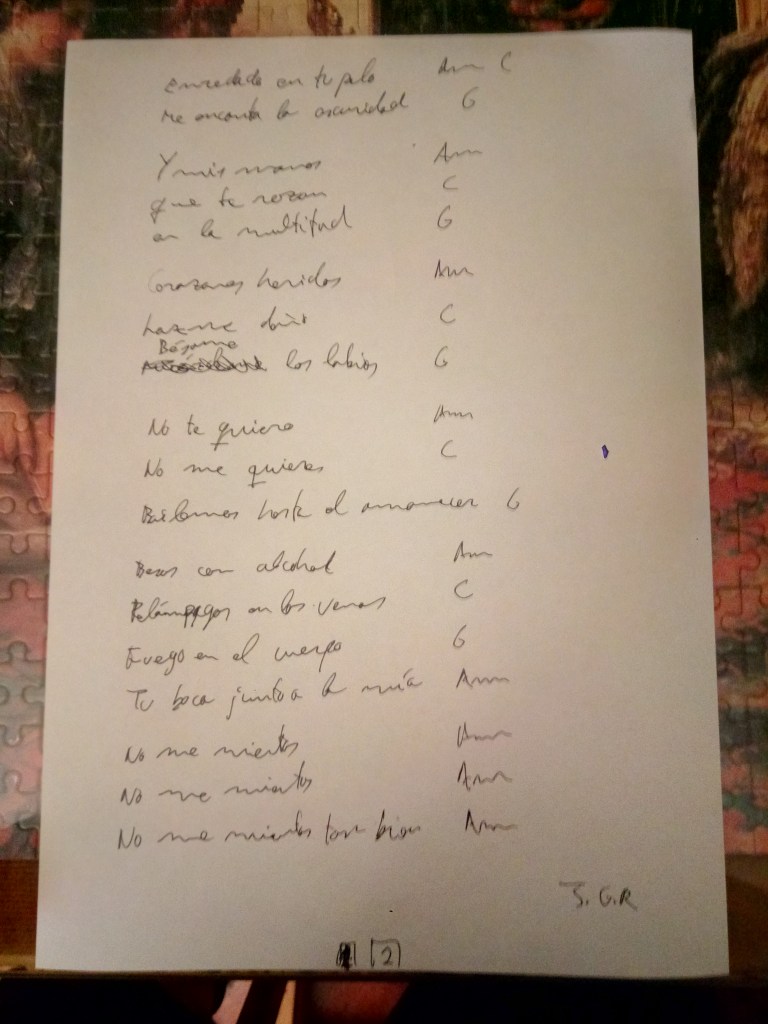 Enredado en tu pelo Am C
Me encanta la oscuridad G
Y mis manos Am
que te rozan C
en la multitud G
Corazones heridos Am
hazme C
Bésame
los labios G
No te quiero Am
No me quieres C
Bailamos hasta el amanecer G
Besos con alcohol Am
Relámpagos en las venas C
Fuego en el cuerpo G
Tu boca junto a la mía Am
No me mientas Am
No me mientas Am
No me mientas tan bien Am
J. G.R
2